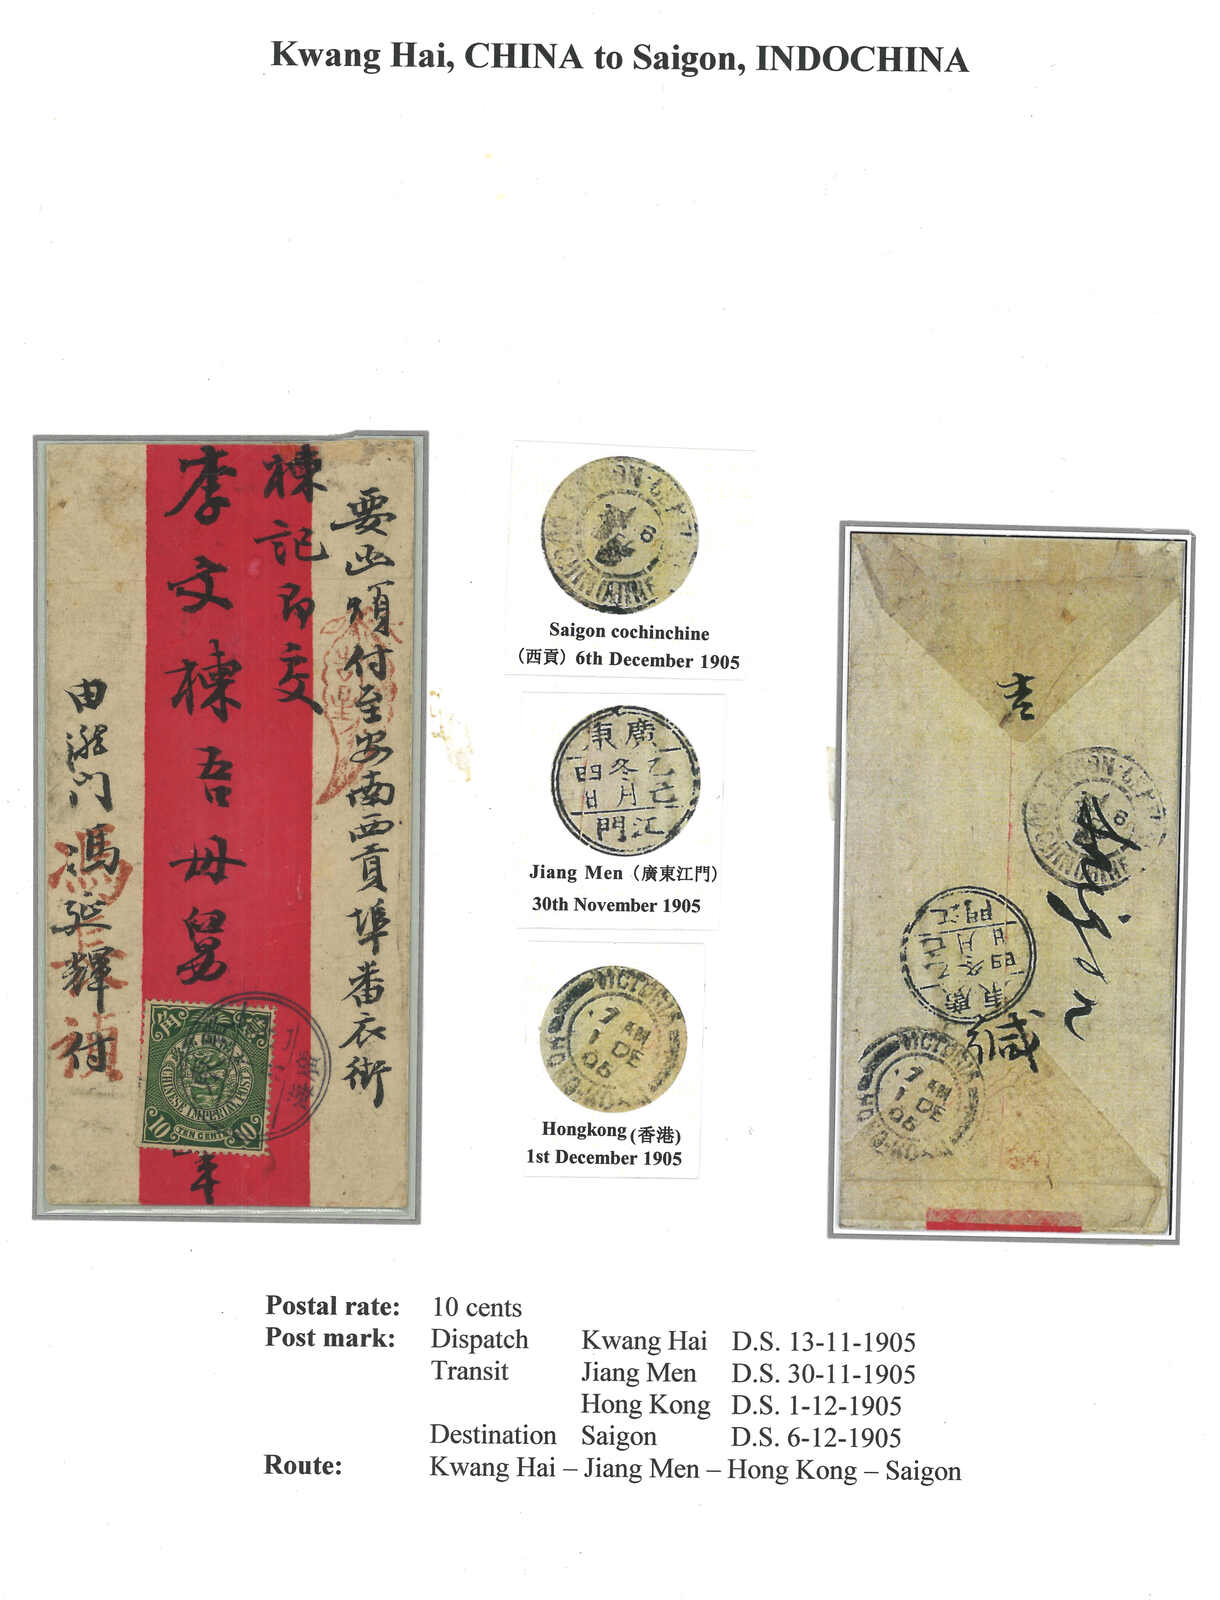 Kwang Hai, CHINA to Saigon, INDOCHINA
要函煩付至安南西貢埠番衣街
棟記即交
李文棟吾母舅
由瀧門馮延輝付
CHINESE IMPERIAL POST
10
TEN CENTS
10
Saigon cochinchine
（西貢）6th December 1905
廣東
乙巳
冬月
四日
江門
Jiang Men（廣東江門）
30th November 1905
VICTORIA
7 AM
1 DE
05
HONG-KONG
Hongkong (香港)
1st December 1905
吉
緘
廣東
乙巳
冬月
四日
江門
VICTORIA
7 AM
1 DE
05
HONG-KONG
Postal rate: 10 cents
Post mark: Dispatch Kwang Hai D.S. 13-11-1905
Transit Jiang Men D.S. 30-11-1905
Hong Kong D.S. 1-12-1905
Destination Saigon D.S. 6-12-1905
Route: Kwang Hai – Jiang Men – Hong Kong – Saigon